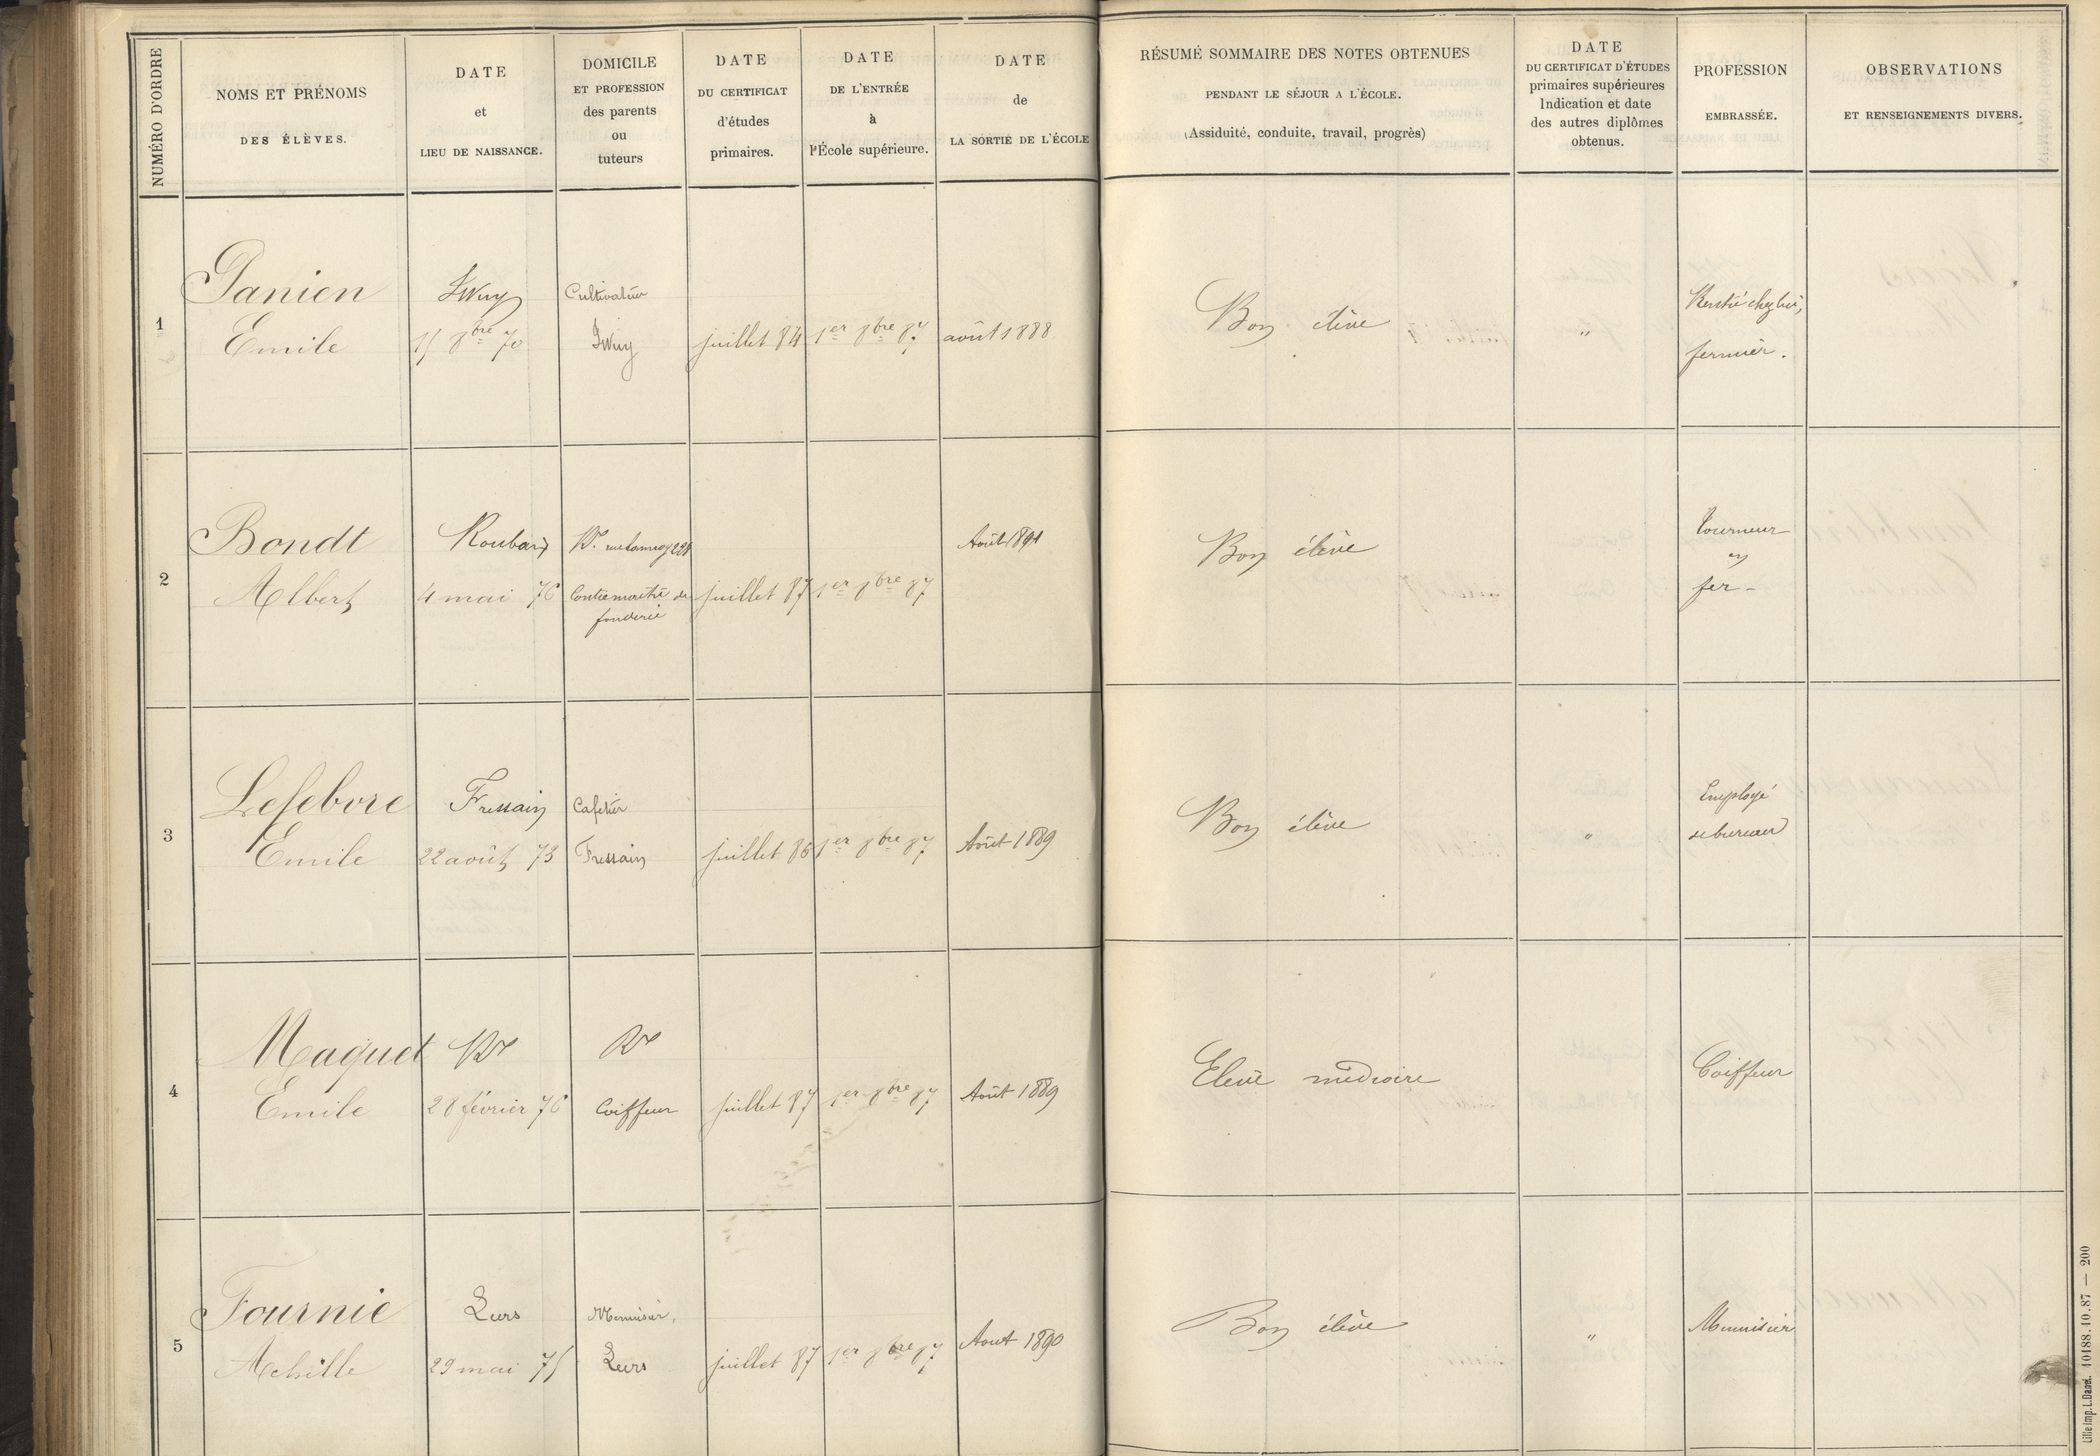 NUMÉRO D'ORDRE
NOMS ET PRÉNOMS
DES ÉLÈVES.
DATE
et
LIEU DE NAISSANCE.
DOMICILE
ET PROFESSION
des parents
ou
tuteurs
DATE
DU CERTIFICAT
d'études
primaires.
DATE
DE L'ENTRÉE
à
l'École supérieure.
DATE
de
LA SORTIE DE L'ÉCOLE
RÉSUMÉ SOMMAIRE DES NOTES OBTENUES
PENDANT LE SÉJOUR A L'ÉCOLE.
(Assiduité, conduite, travail, progrès)
DATE
DU CERTIFICAT D'ÉTUDES
primaires supérieures
Indication et date
des autres diplômes
obtenus.
PROFESSION
EMBRASSÉE.
OBSERVATIONS
ET RENSEIGNEMENTS DIVERS.
1
Panien
Emile
Iwuy
15 8bre 70
Cultivateur
Iwuy
juillet 84
1er 8bre 87
août 1888
Bon élève
"
Rentré chez lui,
fermier.
2
Bondt
Albert
Roubaix
4 mai 76
Rx rue Lannoy 228
Contremaître de
fonderie
juillet 87
1er 8bre 87
Août 1891
Bon élève
Tourneur
en
fer -
3
Lefebvre
Emile
Fressain
22 août 73
Cafetier
Fressain
juillet 86
1er 8bre 87
Août 1889
Bon élève
"
Employé
de bureau
4
Maquet
Emile
Rx
28 février 76
Rx
Coiffeur
juillet 87
1er 8bre 87
Août 1889
Elève médiocre
Coiffeur
5
Fournie
Achille
Leers
29 mai 75
Menuisier,
Leers
juillet 87
1er 8bre 87
Aout 1890
Bon élève
"
Menuisier
Lille Imp. L. Danel. 10188.10.87 — 200